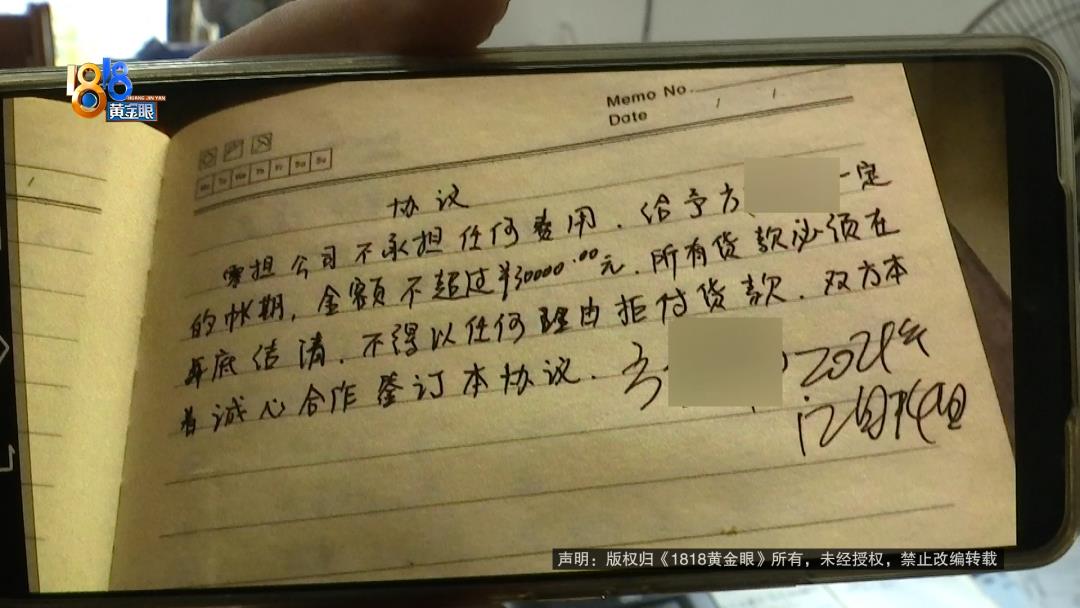 1818
HUANG JIN YAN
黄金眼
Memo No.
Date / /
Mo Tu We Th Fr Sa Su
协议
零担公司不承担任何费用.给予方 一定
的帐期,金额不超过¥30000.00元.所有货款必须在
年底结清.不得以任何理由拒付货款.双方本
着诚心合作签订本协议. 方 2021年
12月14日
声明：版权归《1818黄金眼》所有，未经授权，禁止改编转载